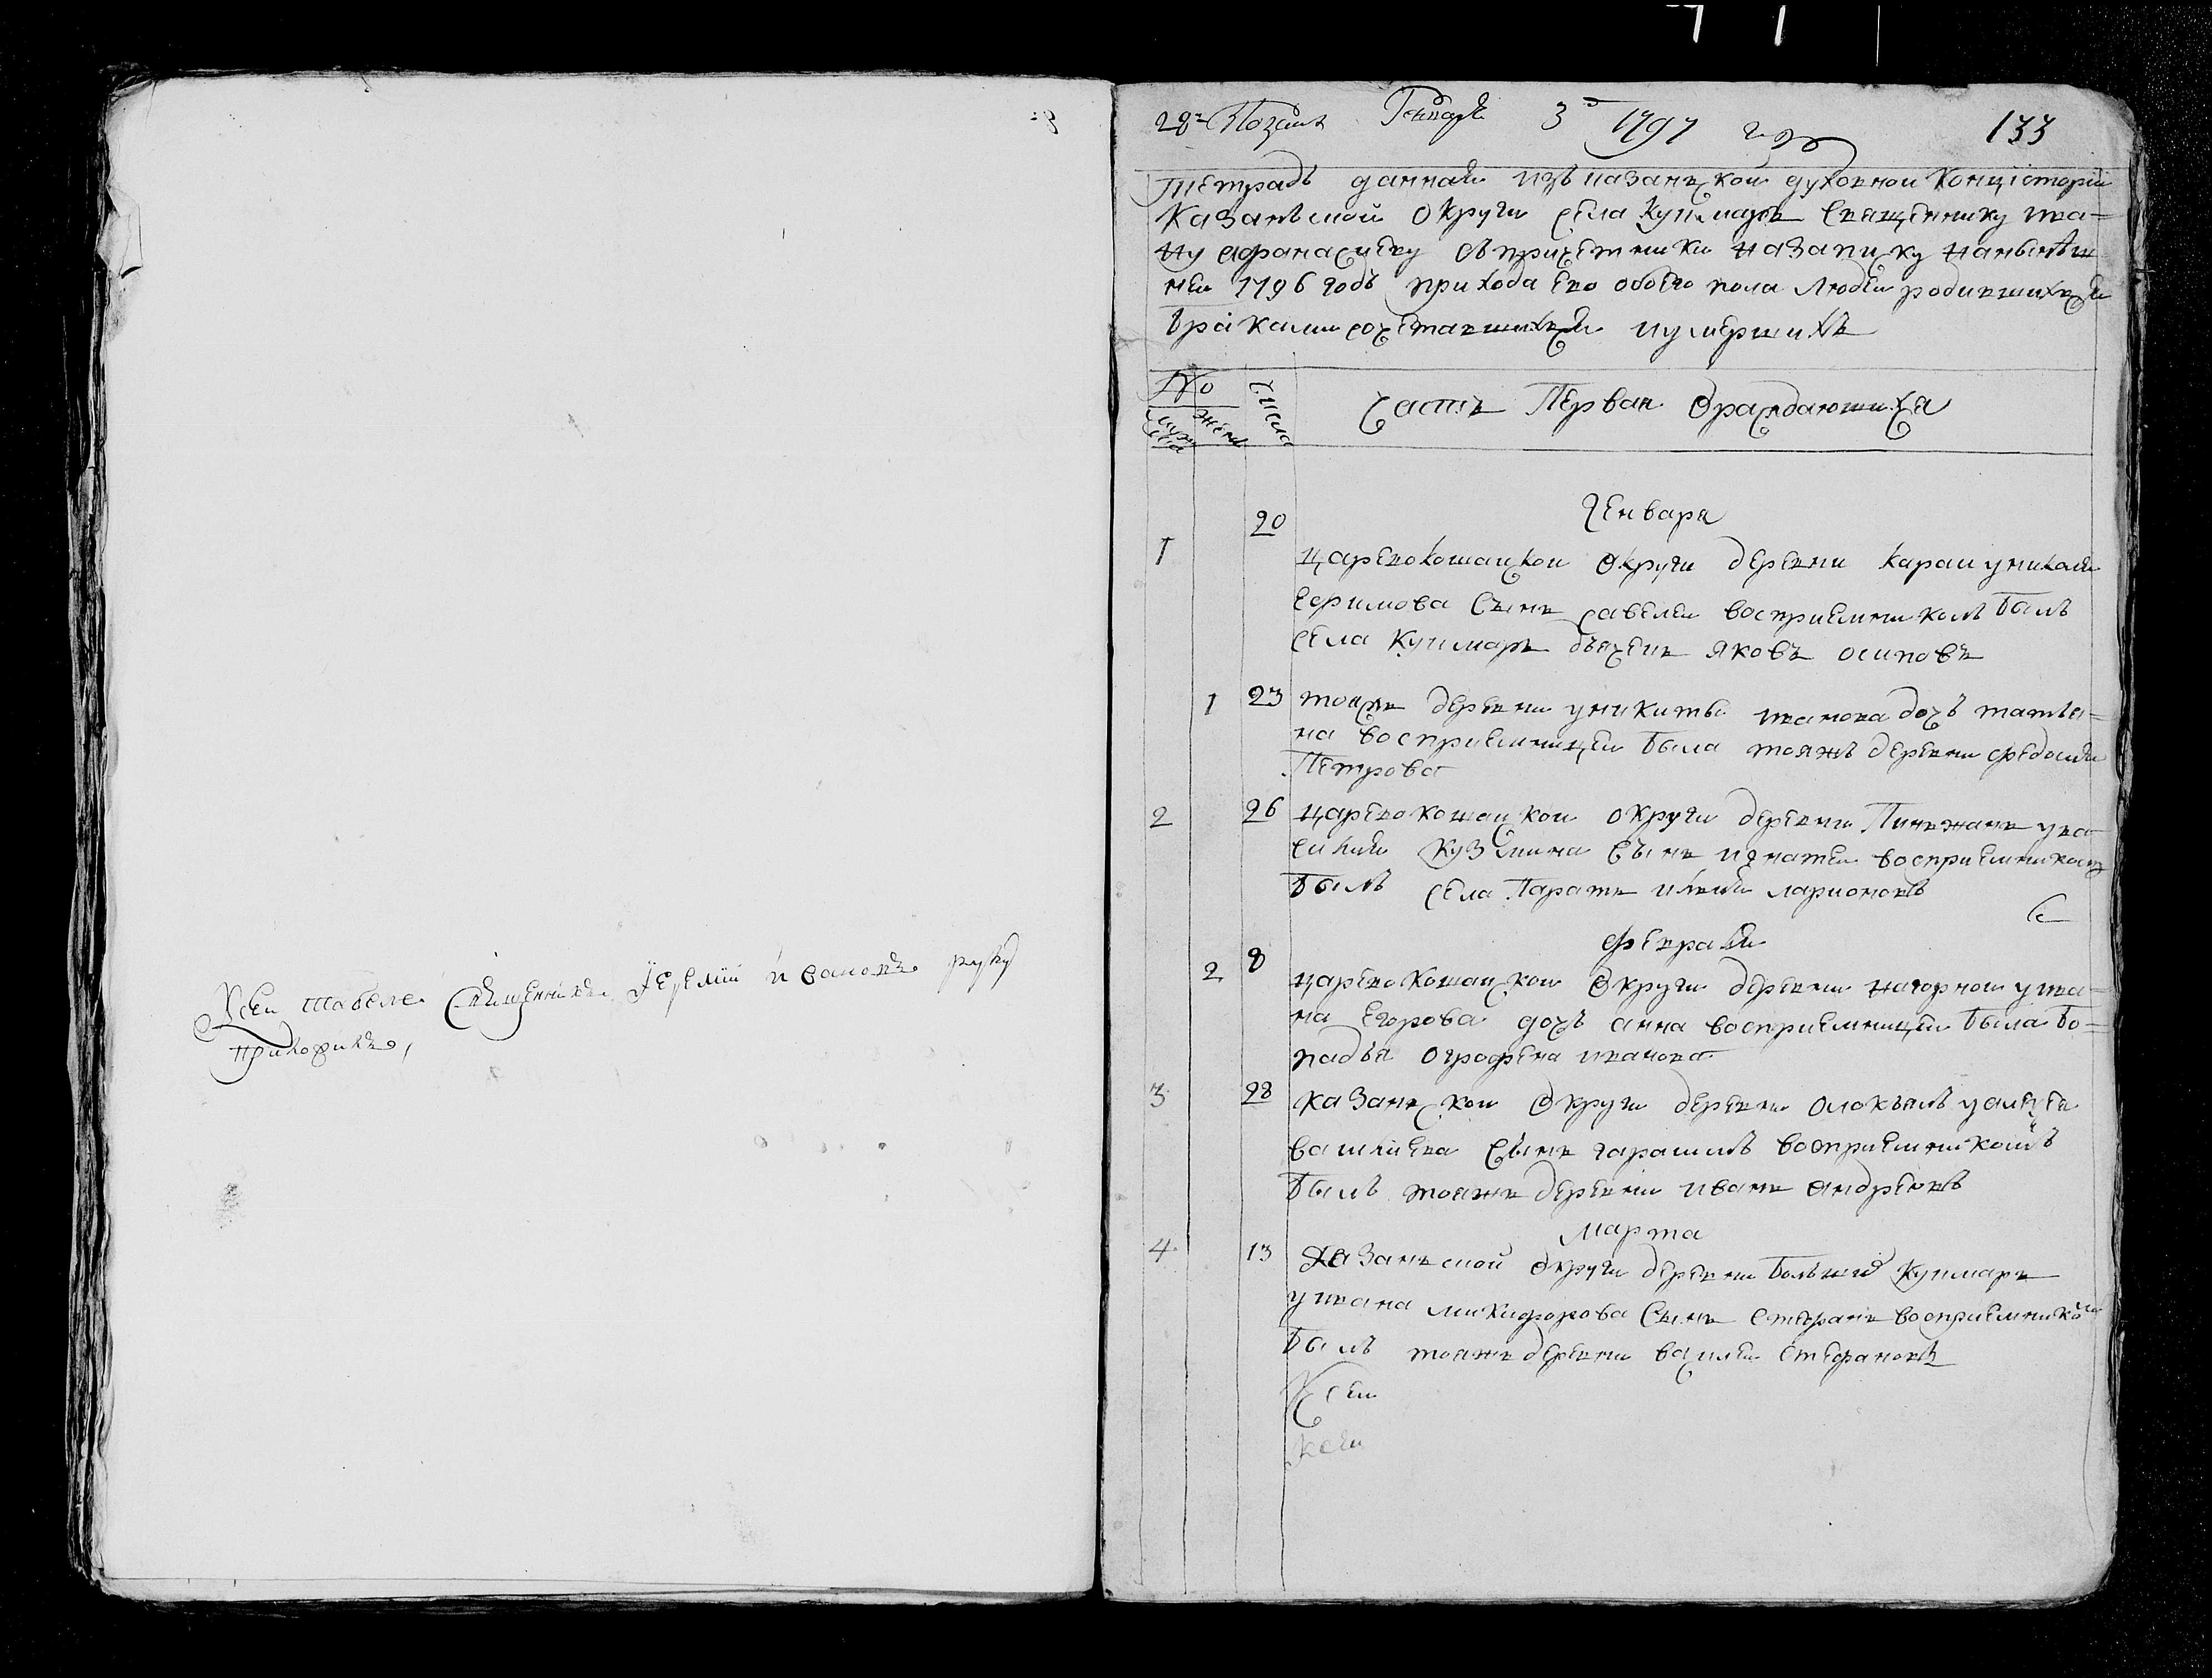 Ксей табеле священникъ Иеремий Ивановъ руку
приложилъ
28 Генваря 3 1797 133
Тетрадь данная изъ казанской духовной концистории
Казанской округи села Кушмаръ священнику Ива=
ну Афанасьеву съ причетники на записку на нынеш
ней 1796 годъ прихода ево обоего пола людей родившихся
браками сочетавшихся и умершихъ
№ числа
мужеска женска
Часть Первая ораждающихся
Генваря
1 20
царевококшайской округи деревни Караи у николая
Ефимова сынъ савелей восприемникомъ былъ
села Кушмаръ дьячекъ яковъ осиповъ
1 23 тояже деревни у никиты иванова дочь татья=
на восприемницей была тояжъ деревни федосья
Петрова
2 26 царевококшайской округи деревни Пинжанъ у ва
силия Кузмина сынъ игнатей восприемникомъ
былъ села Паратъ илья ларионовъ
февраля
2 8
царевококшайской округи деревни нагорной у ива=
на Егорова дочь анна восприемницей была по=
падья ографена иванова
3 28 казанской округи деревни у алексея
васильева сынъ гарасимъ восприемникомъ
былъ тояже деревни иванъ андреевъ
марта
4 13 Казанской округи деревни большей Кушмаръ
у ивана микифорова сынъ стефанъ восприемникомъ
былъ тояже деревни василей стефановъ
Ксей
ксей